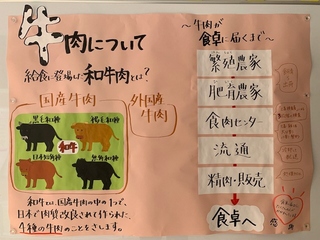 牛肉について
給食に登場した和牛肉とは?
国産牛肉
外国産
牛肉
黒毛和種
褐毛和種
和牛
日本短角種
無角和種
和牛は、国産牛肉の中の1つで、
日本で肉質改良されて作られた、
4種の牛肉のことをさします。
〜牛肉が
食卓に届くまで〜
繁殖農家
肥育農家
食肉センター
流通
精肉・販売
食卓へ